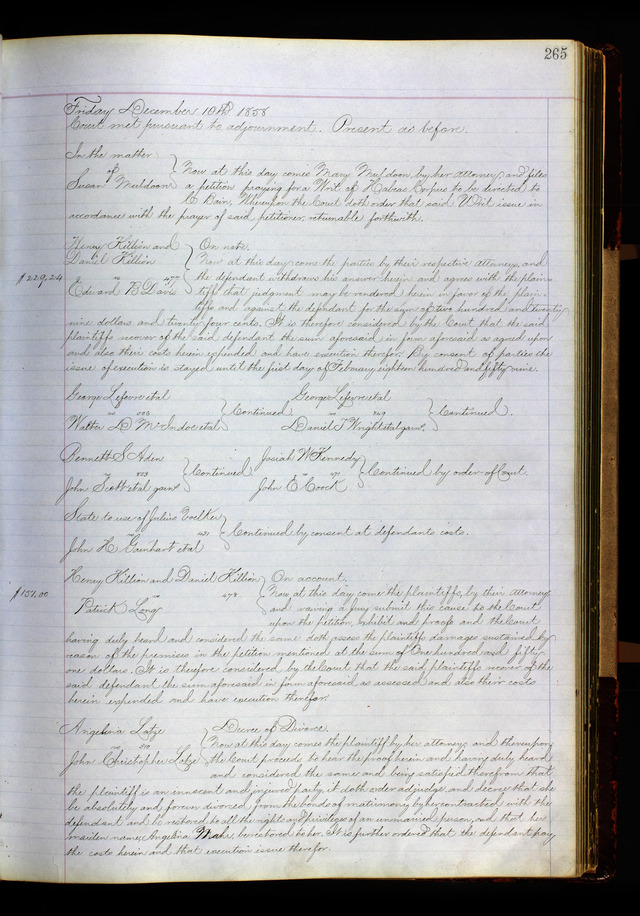 265
Friday December 10th 1858
Court met pursuant to adjournment. Present as before.
In the matter
of
Susan Muldoon
Now at this day comes Mary Muldoon by her attorney and files
a petition praying for a Writ of Habeas Corpus to be directed to
Bain, Whereupon the Court doth order that said Writ issue in
accordance with the prayer of said petitioner, returnable forthwith.
Henry Killion and
Daniel Killion
vs 477
Edward B Davis
$229,24
On note.
Now at this day come the parties by their respective attorneys, and
the defendant withdraws his answer herein and agrees with the plain-
tiffs that judgment may be rendered herein in favor of the plain-
tiffs and against the defendant for the sum of two hundred and twenty
nine dollars and twenty four cents. It is therefore considered by the Court that the said
plaintiffs recover of the said defendant the sum aforesaid in form aforesaid as agreed upon
and also their costs herein expended and have execution therefor. By consent of parties the
issue of execution is stayed until the first day of February eighteen hundred and fifty nine.
George Lefevre et al
vs
Walter D et al
Continued
George Lefevre et al
vs
Daniel T Wright et al
Continued.
Bennett S Aden
vs
John Scott et al
Continued
Josiah W Kennedy
vs
John E
Continued by order of Court.
State to use of Julius Voelker
vs
John H Gainhart et al
Continued by consent at defendants costs.
Henry Killion and Daniel Killion
vs 478
Patrick Long
$151.00
On account.
Now at this day come the plaintiffs, by their attorney
and waiving a jury submit this cause to the Court
upon the petition, exhibit and proofs and the Court
having duly heard and considered the same doth assess the plaintiffs damages sustained by
reason of the premises in the petition mentioned at the sum of One hundred and fifty
one dollars. It is therefore considered by the Court that the said plaintiffs recover of the
said defendant the sum aforesaid in form aforesaid as assessed and also their costs
herein expended and have execution therefor.
Angelina Lotze
vs
John Christopher Lotze
Decree of Divorce.
Now at this day comes the plaintiff by her attorney, and thereupon
the Court proceeds to hear the proof herein and having duly heard
and considered the same and being satisfied therefrom that
the plaintiff is an innocent and injured party, it doth order adjudge and decree that she
be absolutely and forever divorced from the bonds of matrimony by her contracted with the
defendant and be restored to all the rights and privileges of an unmarried person, and that her
maiden name, Angelina be restored to her. It is further ordered that the defendant pay
the costs herein and that execution issue therefor.